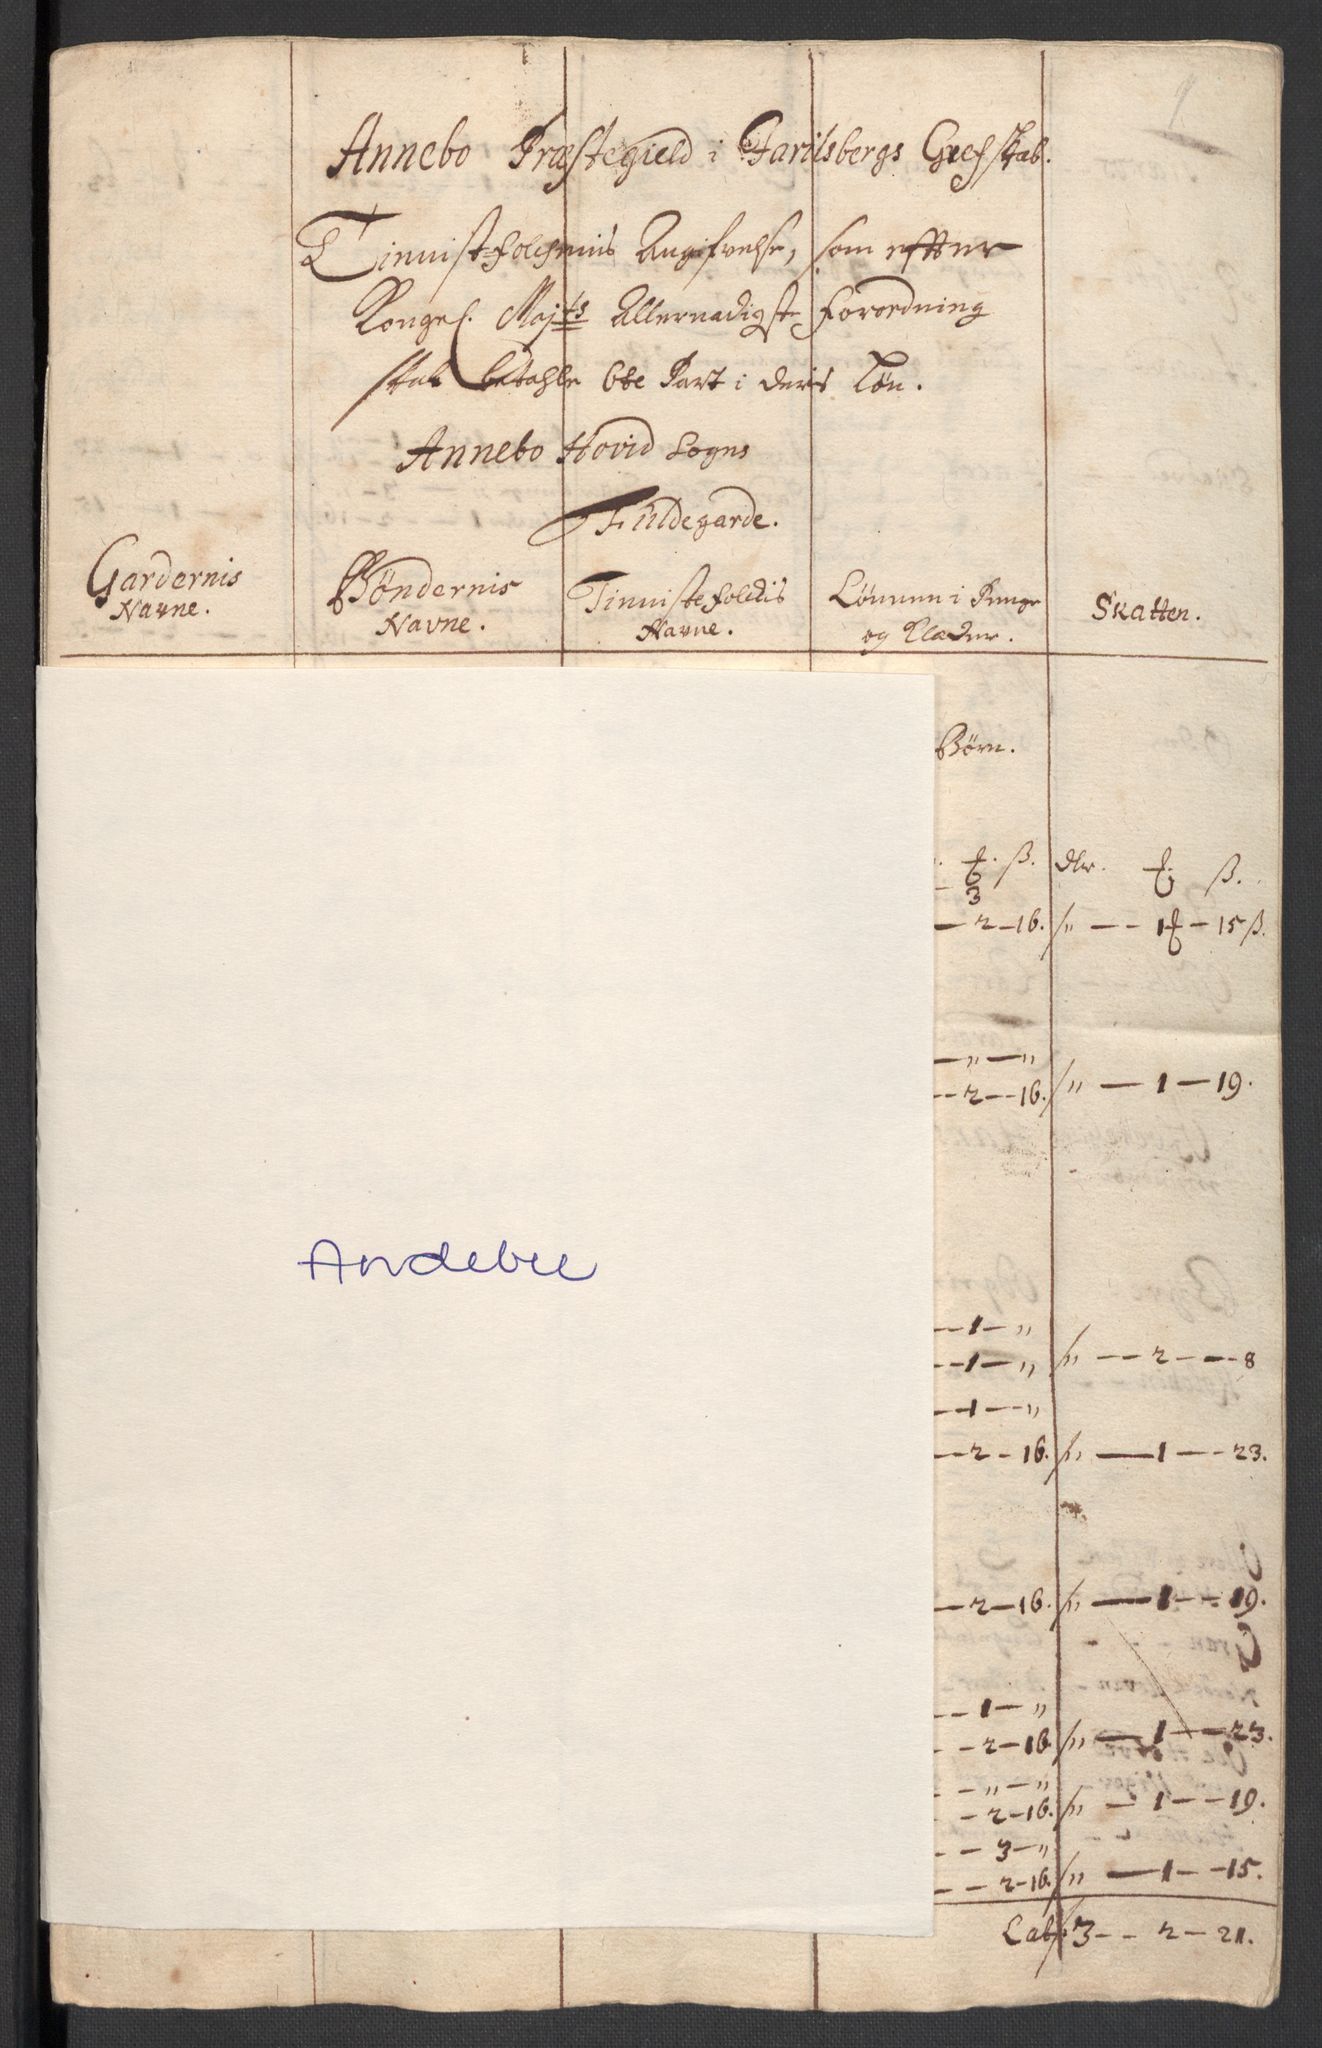 Annebo Præstegield i Jarilsbergs Grefskab.
Tiennist-folchenis Angifvelse, som effter
Kongel. Majts Allernadigste Forordning
skal betahle 6te Part i deris Løn.
Annebo Hovid Sogns
Fuldegarde.
Gardernis Navne.
Bøndernis Navne.
Tienniste folckis Navne.
Lønnen i Penge og Klæder.
Skatten.
Børn.
ß. dlr. ß.
3
2-16. 1 - 15 ß.
„ — „
2-16. „ — 1 — 19.
Andebu
1 — „
1 — „ „ — 2 — 8
1 — „
2 - 16. „ — 1 — 23.
2-16. „ — 1 — 19.
1 — „
2-16 „ — 1 — 23.
„ — „
2-16. „ — 1 — 19.
3 — „
2-16. „ — 1 — 15.
Lat 3 — 2 — 21.